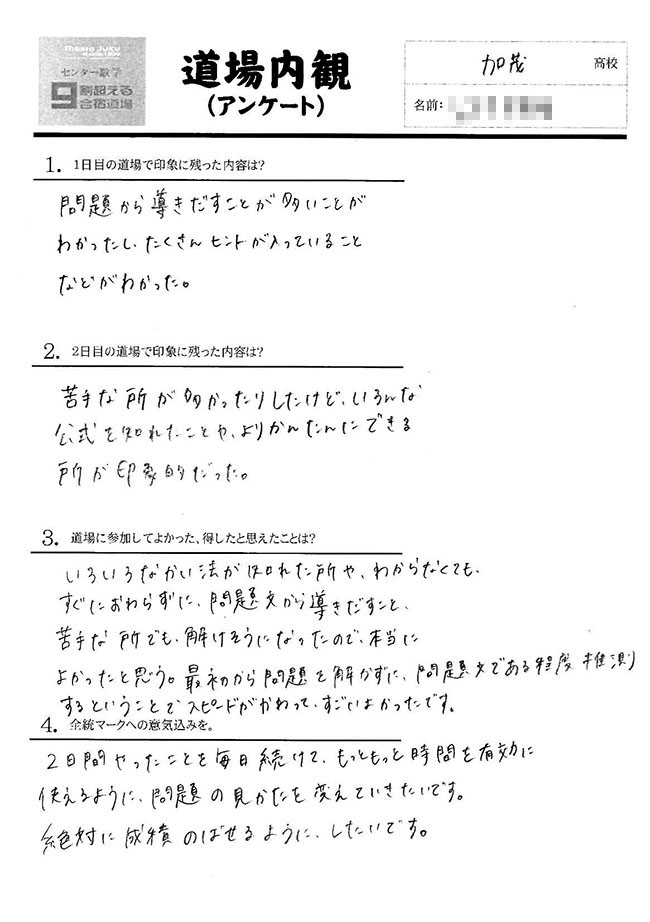 Hissho Juku
センター数学
9割超える
合宿道場
道場内観
(アンケート)
加茂 高校
名前:
1. 1日目の道場で印象に残った内容は?
問題から導きだすことが多いことが
わかったし、たくさんヒントが入っていること
などがわかった。
2. 2日目の道場で印象に残った内容は?
苦手な所が多かったりしたけど、いろんな
公式を知れたことや、よりかんたんにできる
所が印象的だった。
3. 道場に参加してよかった、得したと思えたことは?
いろいろなかい法が知れた所や、わからなくても、
すぐにおわらずに、問題文から導きだすこと、
苦手な所でも、解けそうになったので、本当に
よかったと思う。最初から問題を解かずに、問題文である程度推測
するということでスピードがかわって、すごいよかったです。
4. 全統マークへの意気込みを。
2日間やったことを毎日続けて、もっともっと時間を有効に
使えるように、問題の見かたを変えていきたいです。
絶対に成績のばせるように、したいです。